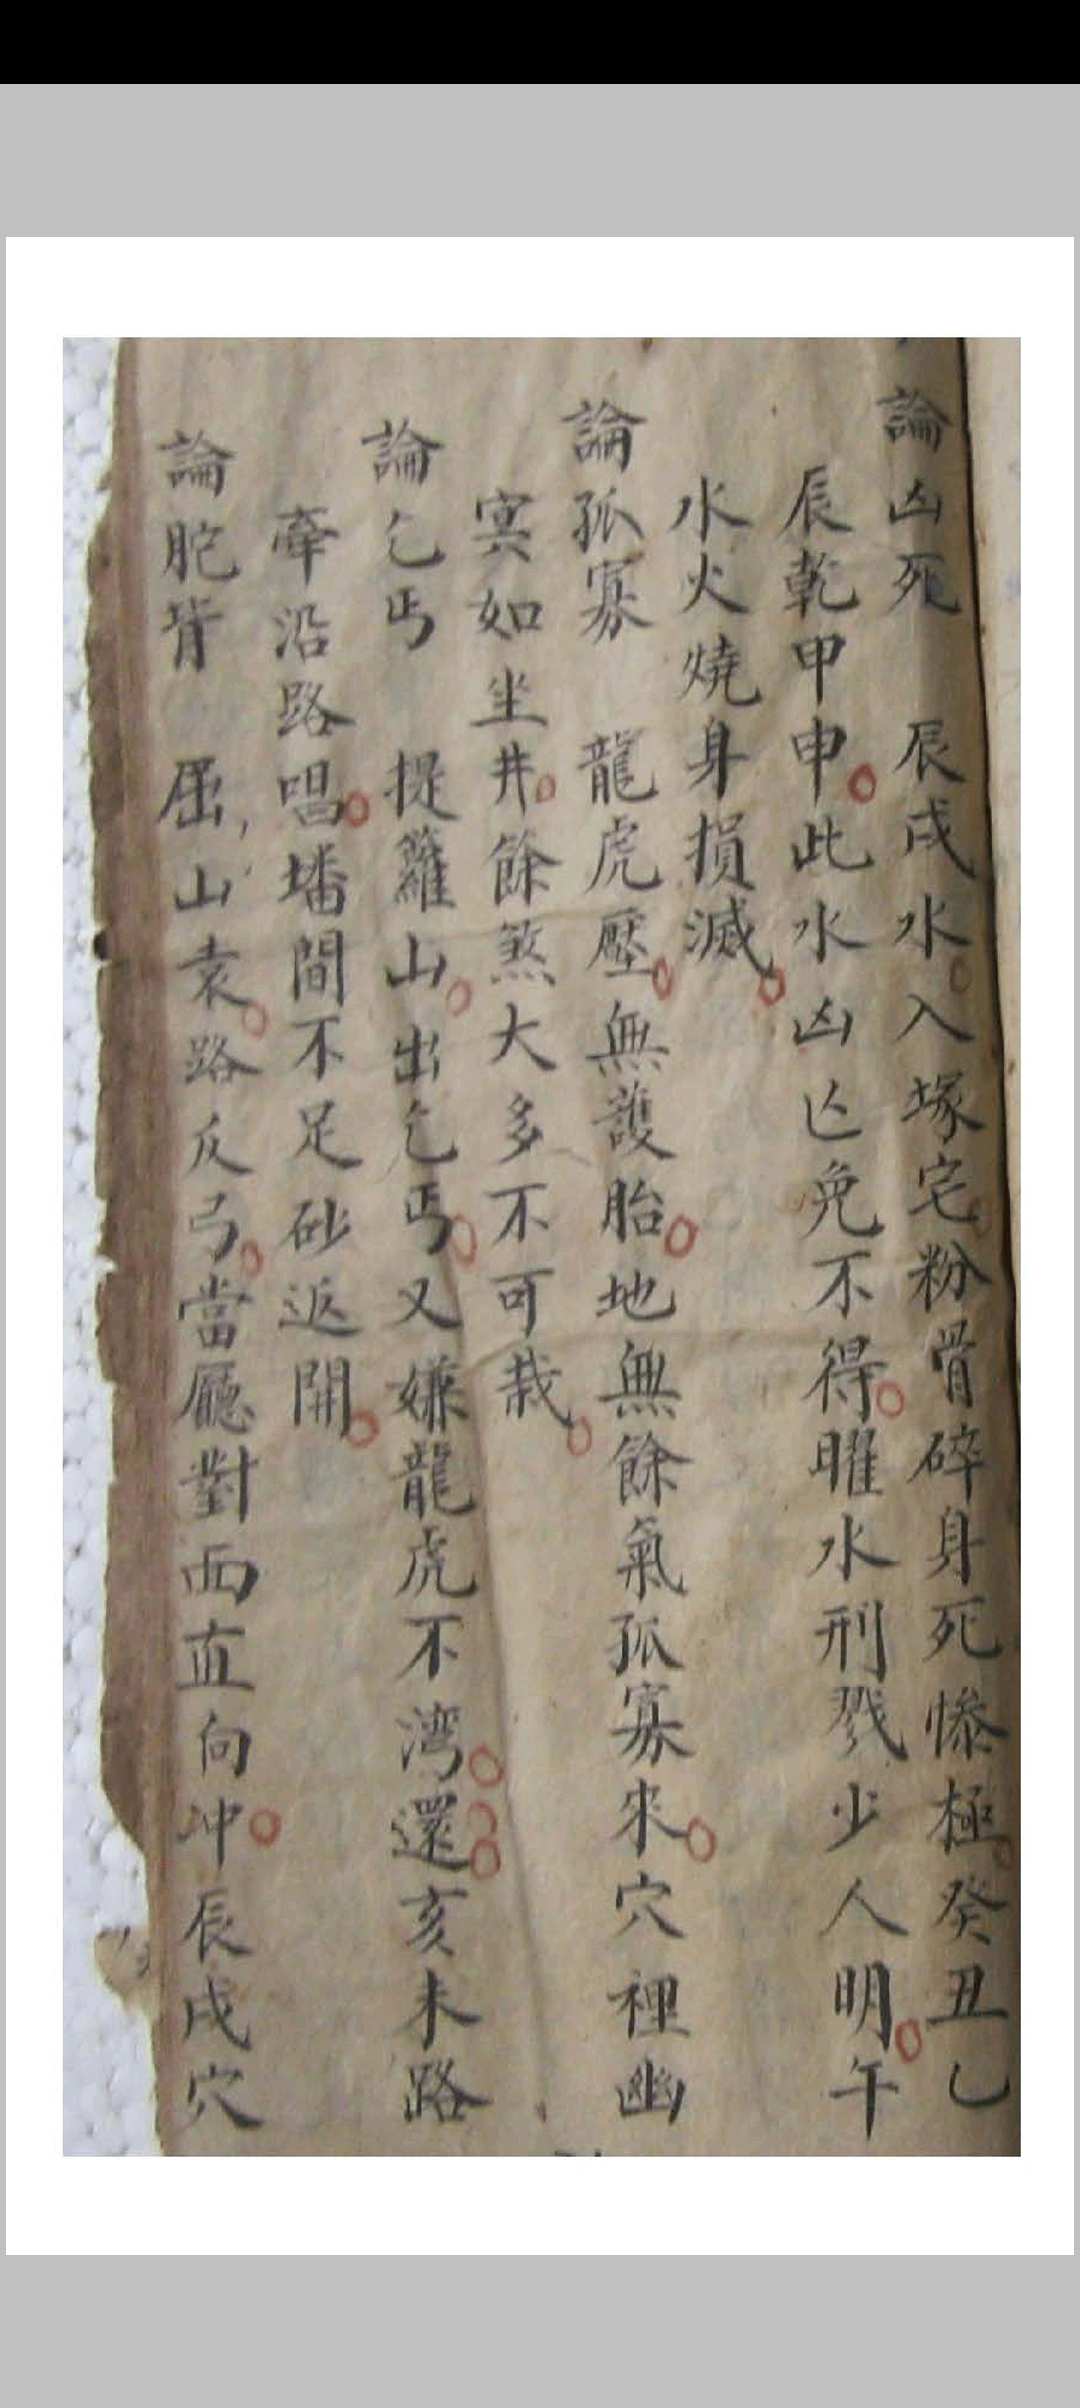 論凶死　辰戌水入塚宅粉骨碎身死慘極癸丑乙
辰乾甲申此水凶亡免不得曜水刑戮少人明午
水火燒身損滅
論孤寡　龍虎壓無護胎地無餘氣孤寡來穴裡幽
冥如坐井餘煞大多不可栽
論乞丐　提籮山出乞丐又嫌龍虎不湾還亥未路
牽沿路唱墦間不足砂返開
論駝背　屈山袁路反弓當廳對面直向冲辰戌穴